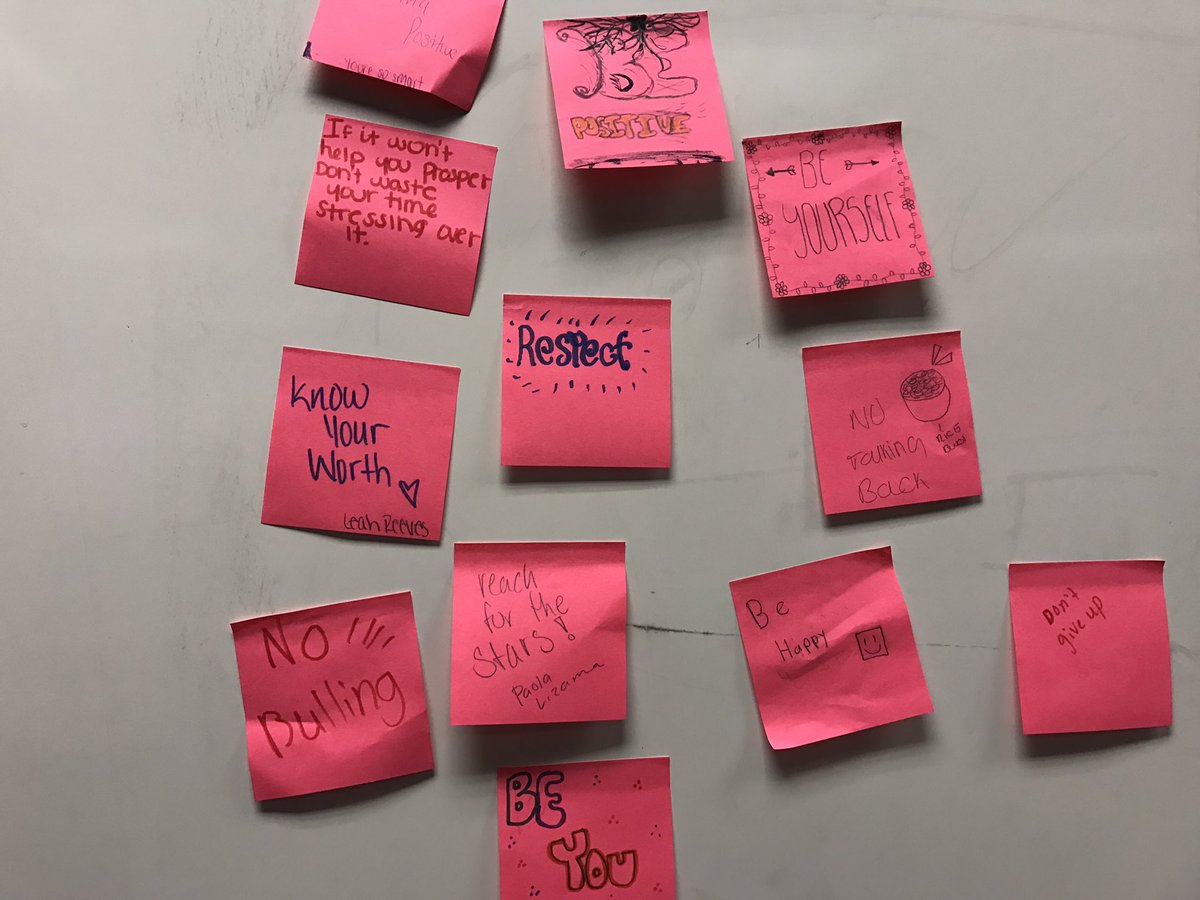 Positive
You're so smart
BE
POSITIVE
If it won't
help you prosper
Don't waste
your time
stressing over
it.
BE
YOURSELF
Respect
Know
Your
Worth
Leah Reeves
NO
Talking
Back
RICE
Bowl
No
Bulling
reach
for the
stars!
Paola
Lizama
Be
Happy
Don't
give up
BE
YOU